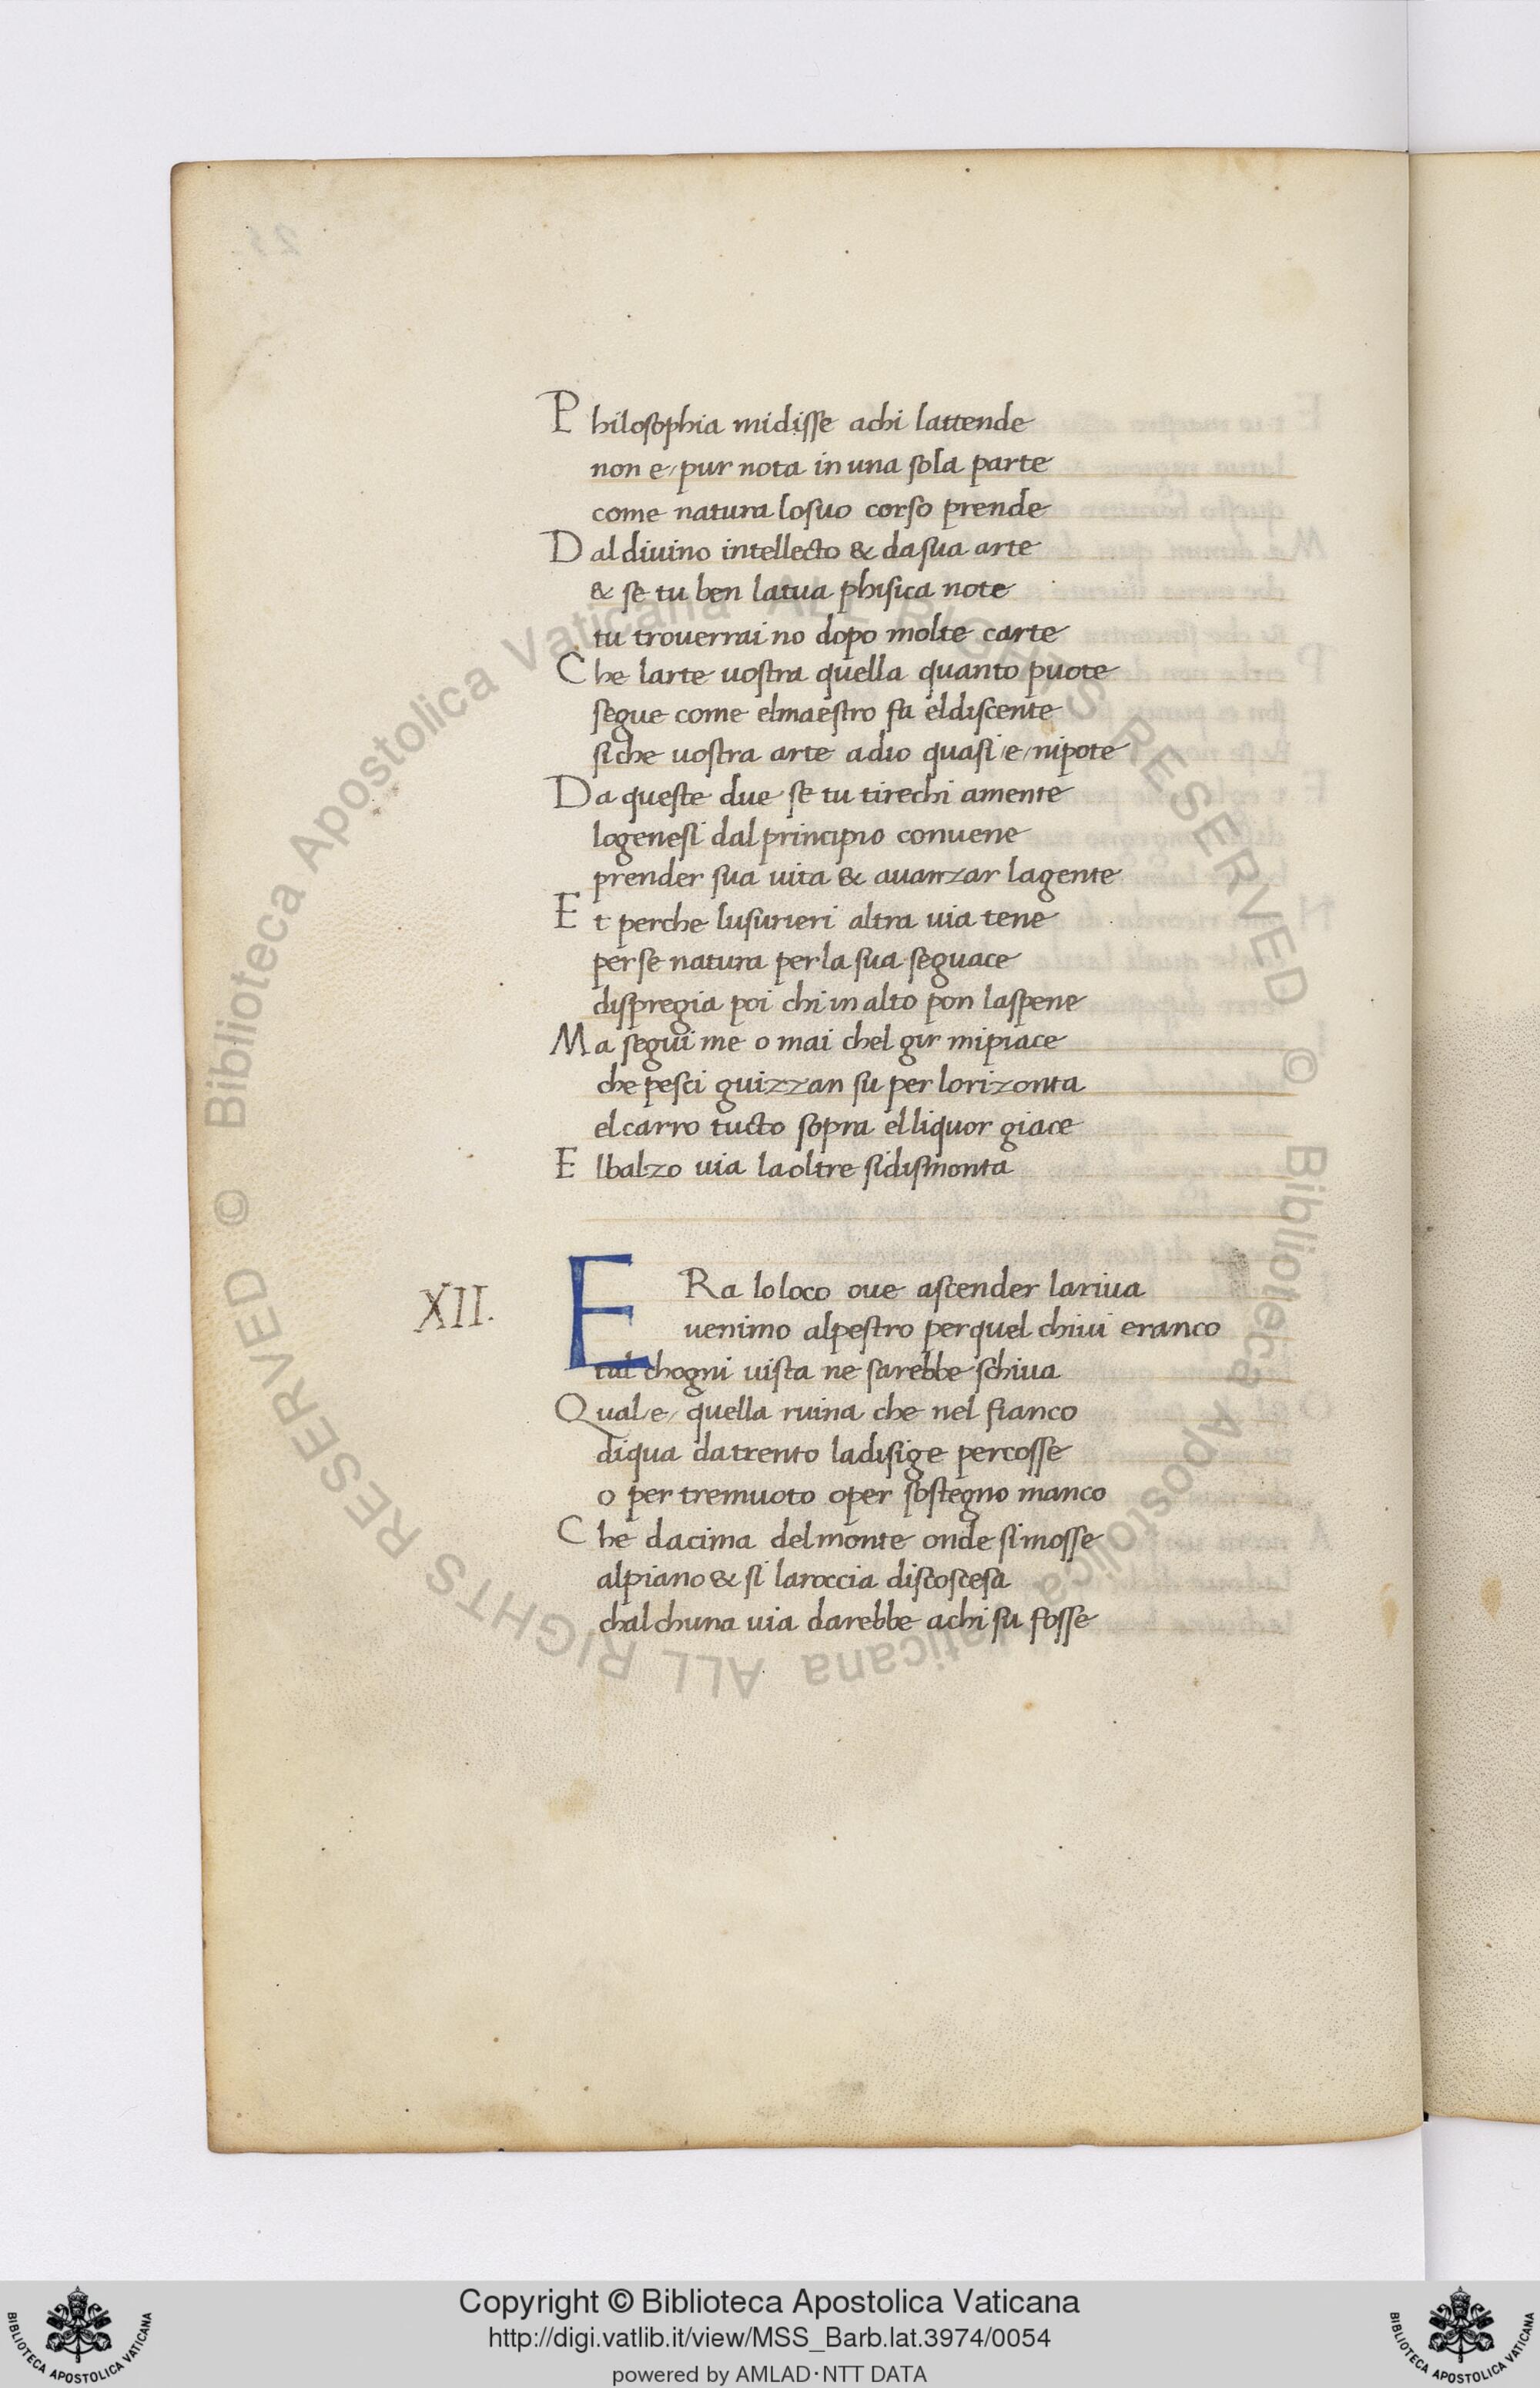 Philosophia midisse achi lattende
non e pur nota in una sola parte
come natura losuo corso prende
Dal diuino intellecto & dasua arte
& se tu ben latua phisica note
tu trouerrai no dopo molte carte
Che larte uostra quella quanto puote
segue come elmaestro fa eldiscente
siche uostra arte adio quasi e nipote
Da queste due se tu tirechi amente
logenesi dal principio conuene
prender sua uita & auanzar lagente
Et perche lusurieri altra uia tene
perse natura perla sua seguace
dispregia poi chi in alto pon laspene
Ma segui me o mai chel gir mipiace
che pesci guizzan su per lorizonta
el carro tucto sopra el liquor giace
El balzo uia laoltre sidismonta
XII.
ERa lo loco oue ascender lariua
uenimo alpestro perquel chiui eranco
tal chogni uista ne sarebbe schiua
Qual e quella ruina che nel fianco
diqua datrento ladisige percosse
o per tremuoto oper sostegno manco
Che dacima delmonte onde simosse
alpiano & si laroccia discoscesa
chalchuna uia darebbe achi su fosse
© Biblioteca Apostolica Vaticana ALL RIGHTS RESERVED
© Biblioteca Apostolica Vaticana ALL RIGHTS RESERVED
Copyright © Biblioteca Apostolica Vaticana
http://digi.vatlib.it/view/MSS_Barb.lat.3974/0054
powered by AMLAD·NTT DATA
BIBLIOTECA APOSTOLICA VATICANA
BIBLIOTECA APOSTOLICA VATICANA